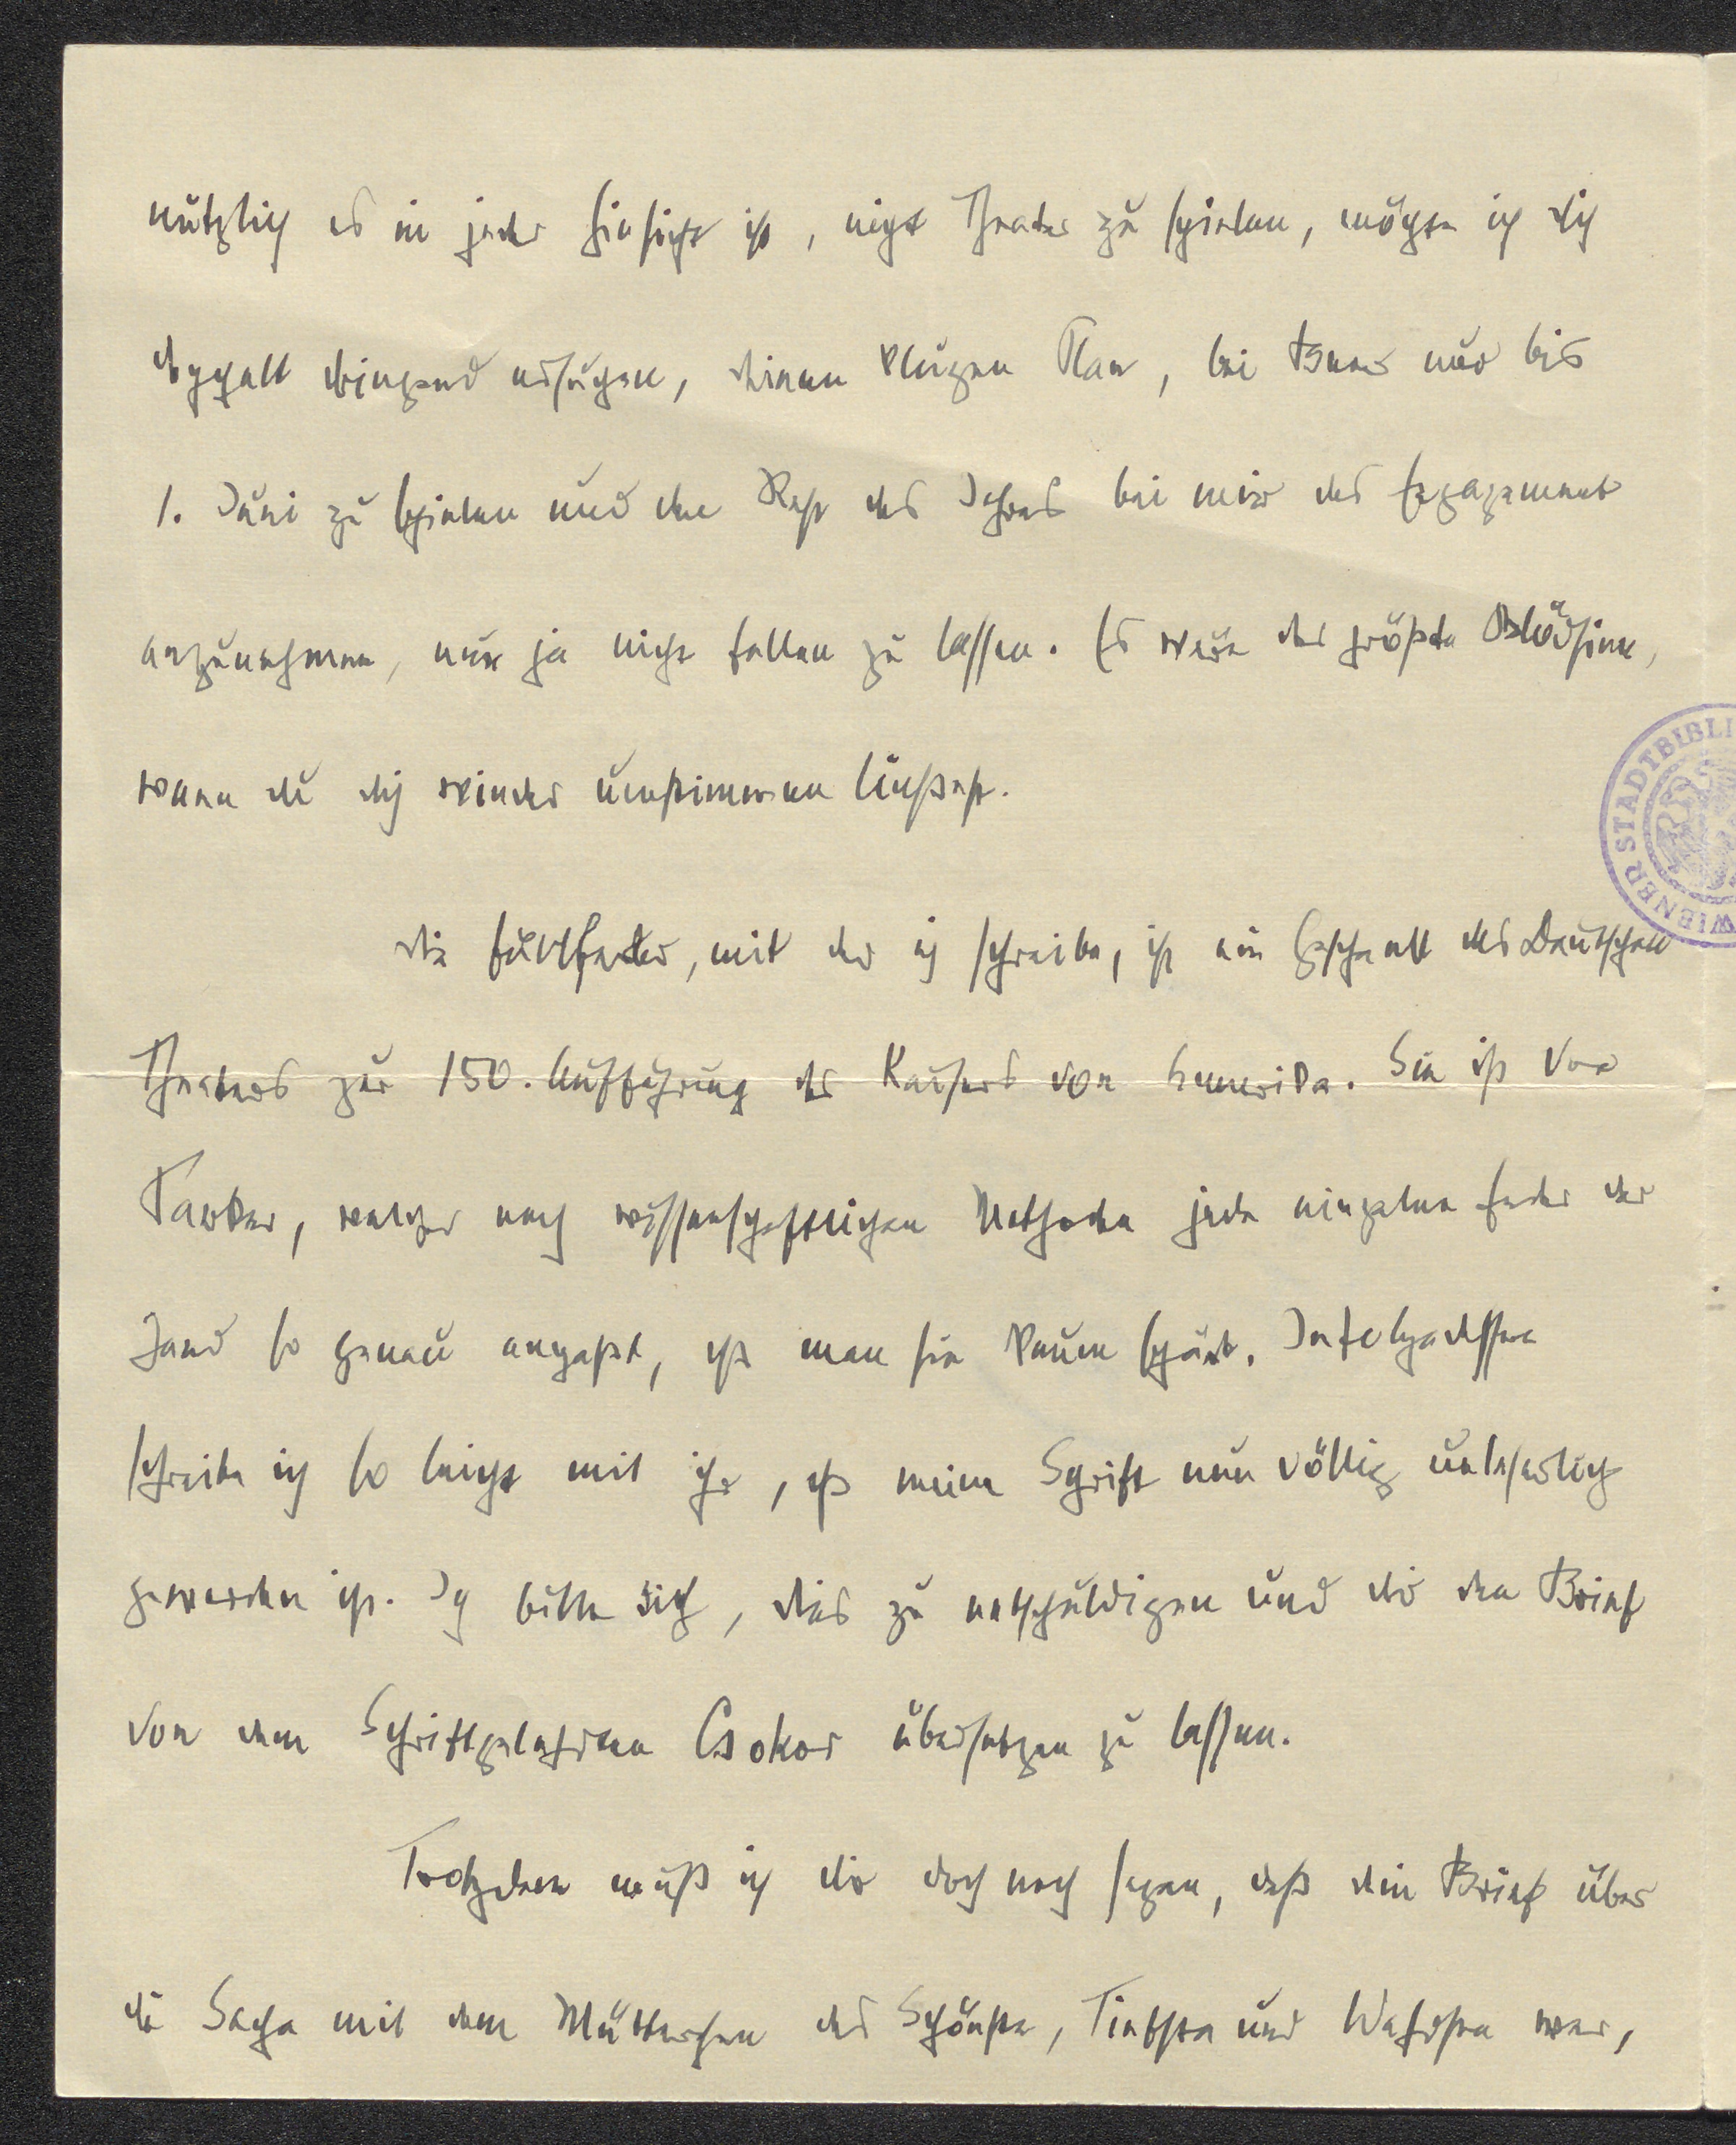 nützlich es in jeder Hinsicht ist, nicht Theater zu spielen, möchte ich dich
doppelt dringend ersuchen, deinen klugen Plan, bei Beer nur bis
1. Juni zu spielen und den Rest des Jahres bei mir das Engagement
anzunehmen, nur ja nicht fallen zu lassen. Es wäre der größte Blödsinn,
wenn du dich wieder umstimmen ließest.
Die Füllfeder, mit der ich schreibe, ist ein Geschenk des Deutschen
Theaters zur 150. Aufführung des Kaisers von Amerika. Sie ist von
Parker, welcher nach wissenschaftlichen Methoden jede einzelne Feder der
Hand so genau anpaßt, daß man sie kaum spürt. Infolgedessen
schreibe ich so leicht mit ihr, daß meine Schrift nun völlig unleserlich
geworden ist. Ich bitte dich, dies zu entschuldigen und dir den Brief
von dem Schriftgelehrten Csokor übersetzen zu lassen.
Trotzdem muß ich dir doch noch sagen, daß dein Brief über
die Sache mit dem Mütterchen das Schönste, Tiefste und Wahrste war,
WIENER STADTBIBLI